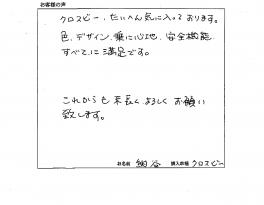 お客様の声
クロスビー、たいへん気に入っております。
色、デザイン、乗り心地、安全機能
すべてに満足です。
これからも末長くよろしくお願い
致します。
お名前 細谷 購入車種 クロスビー